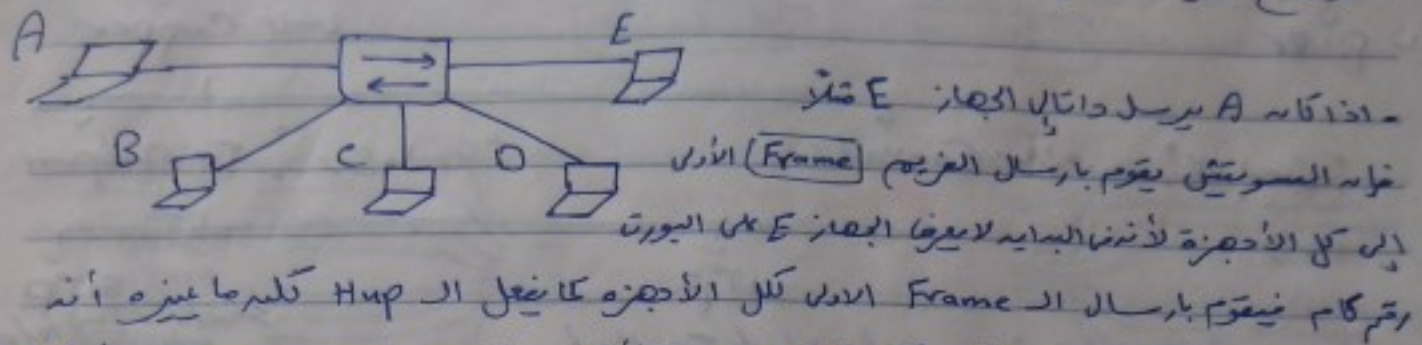 A
E
B
C
D
- اذا كان A يرسل داتا إلى الجهاز E مثلاً
فإن السويتش يقوم بارسال الفريم (Frame) الأولى
إلى كل الأجهزة لأنه في البدايه لا يعرف الجهاز E على البورت
رقم كام فيقوم بارسال الـ Frame الاولى لكل الأجهزه كما يفعل الـ Hup لكن ما يميزه أنه